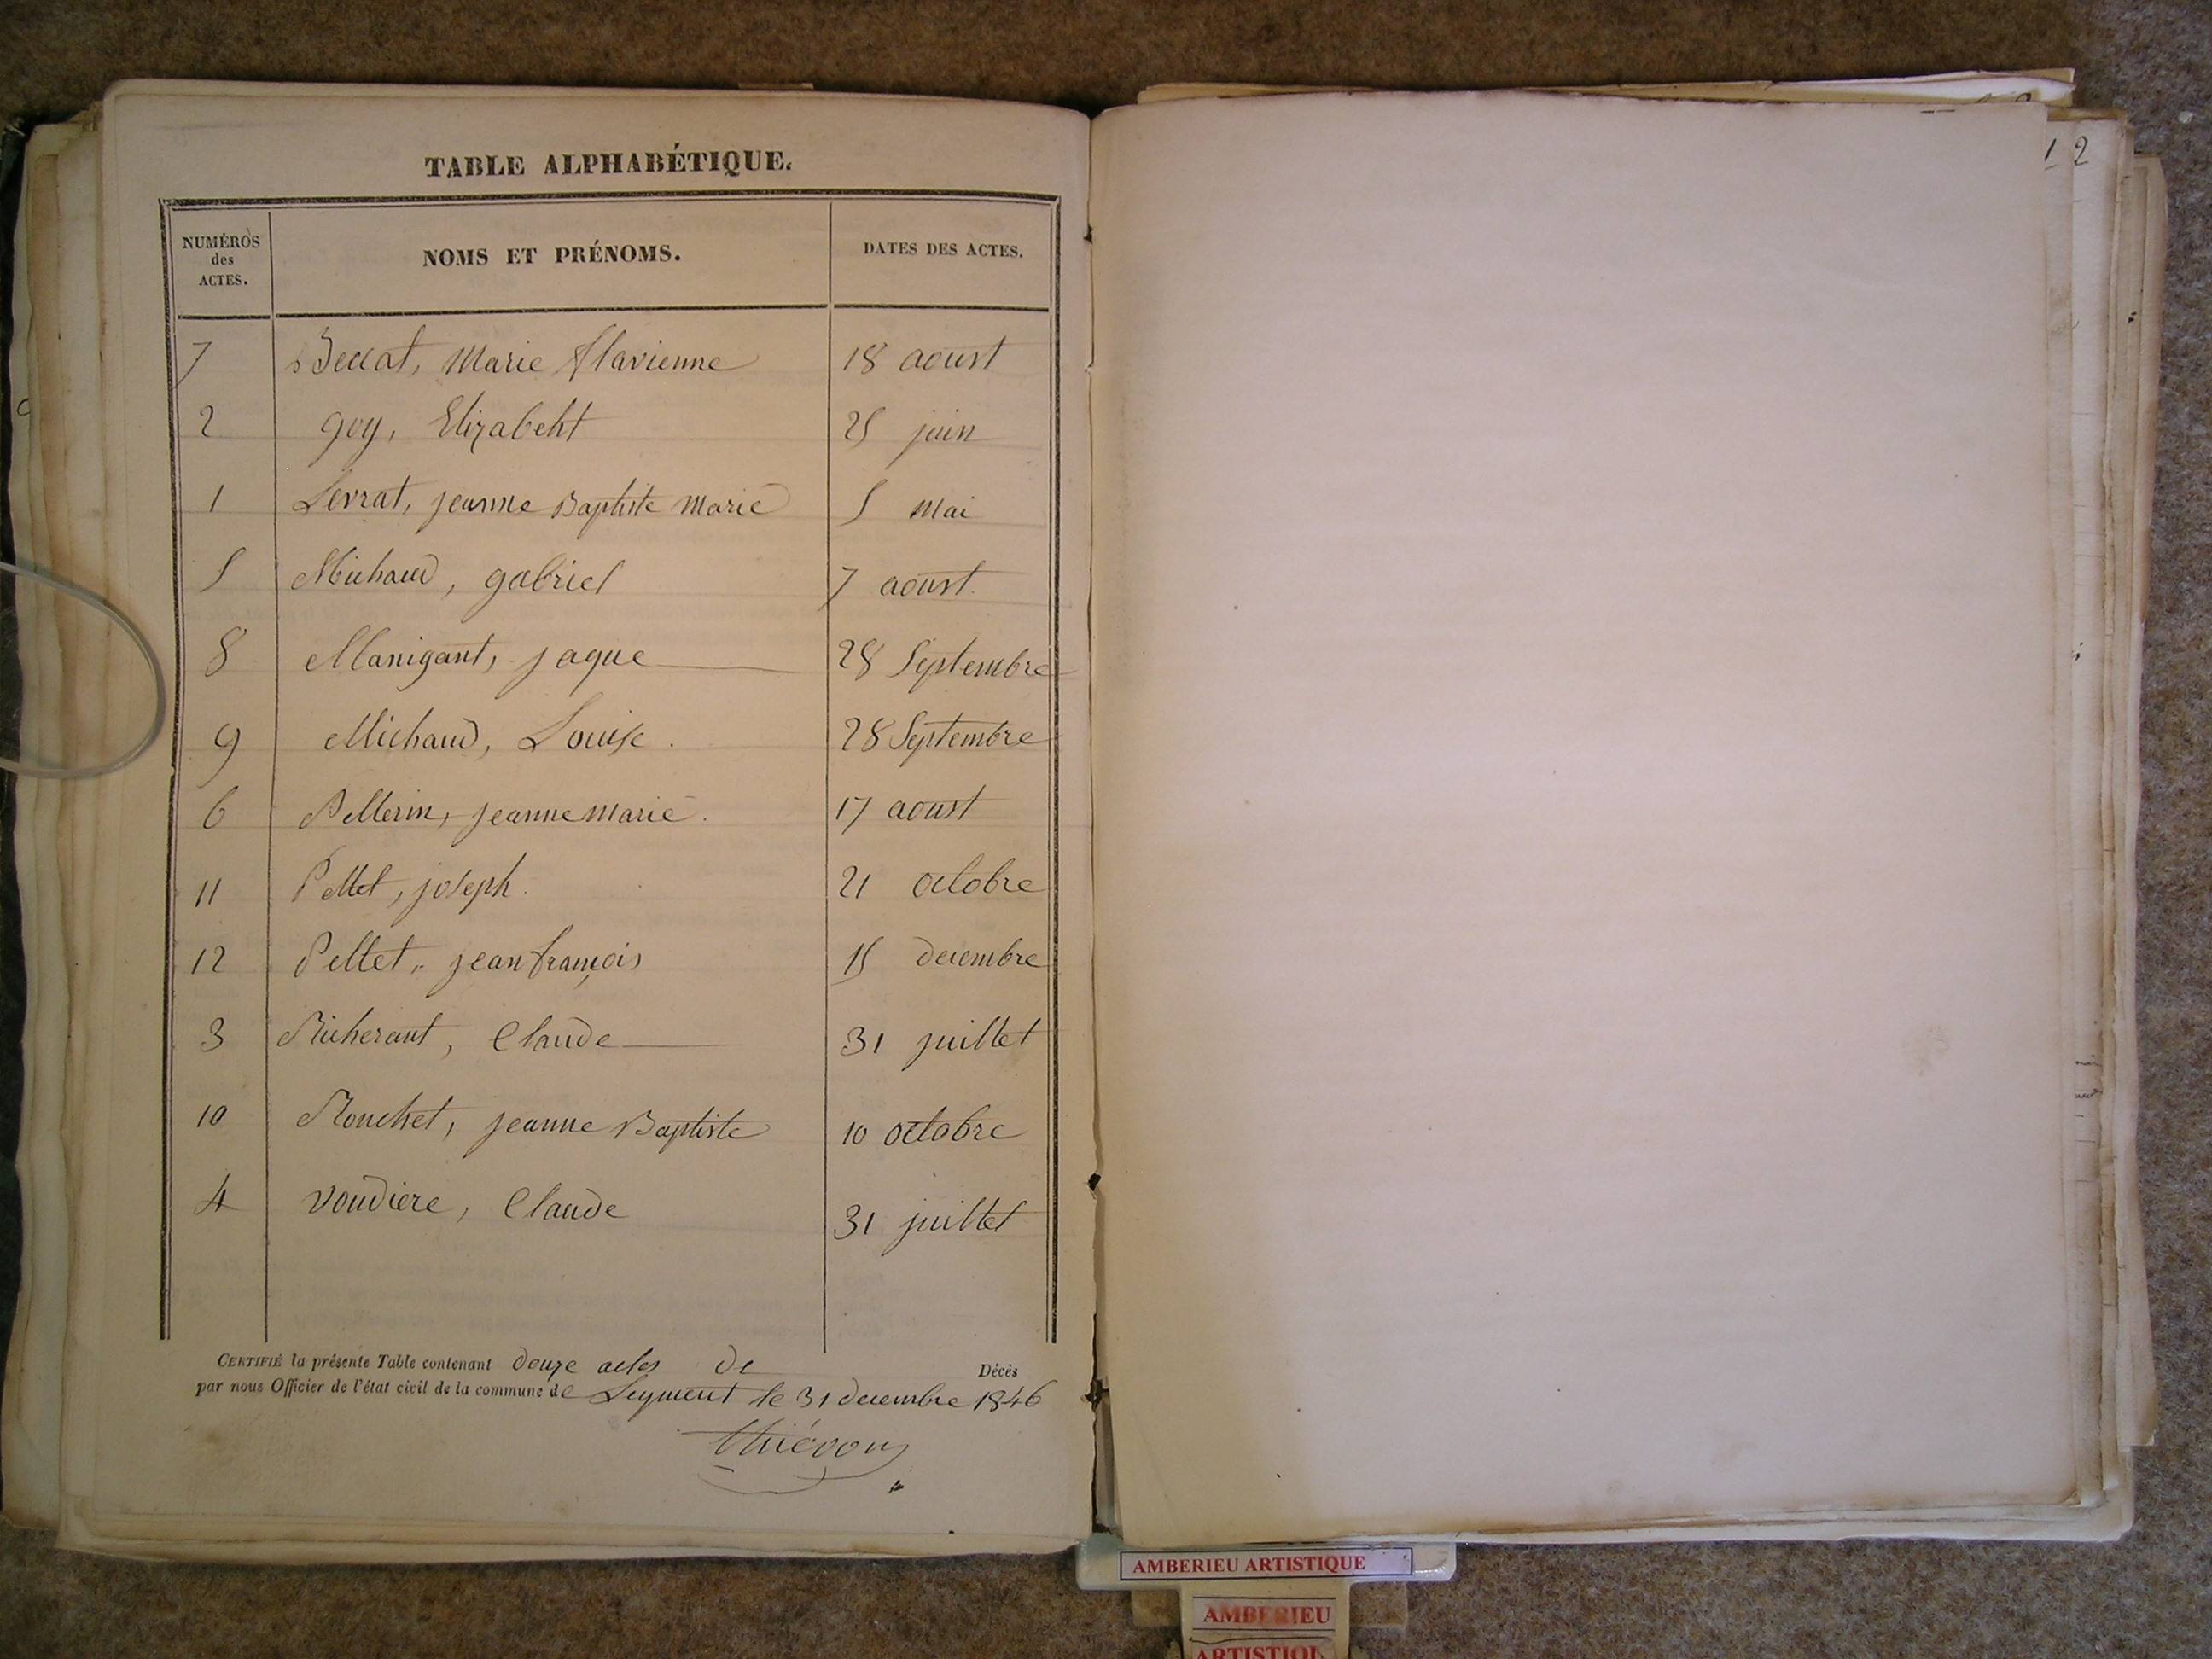 TABLE ALPHABÉTIQUE.
NUMÉROS des ACTES. NOMS ET PRÉNOMS. DATES DES ACTES.
7 Beccat, Marie flavienne 18 aoust
2 goy, Elizabeht 25 juin
1 Levrat, jeanne Baptiste Marie 5 Mai
5 Michaud, gabriel 7 aoust.
8 Manigant, jaque 28 Septembre
9 Michaud, Louise. 28 Septembre
6 Pellerin, jeanne Marie. 17 aoust
11 Pellet, joseph. 21 octobre
12 Pellet, jean françois 15 decembre
3 Richerant, Claude 31 juillet
10 Ronchet, jeanne Baptiste 10 octobre
4 Voudiere, Claude 31 juillet
CERTIFIÉ la présente Table contenant douze actes de Décès
par nous Officier de l'état civil de la commune de Leyment le 31 decembre 1846
thiévon
12
AMBERIEU ARTISTIQUE
AMBERIEU